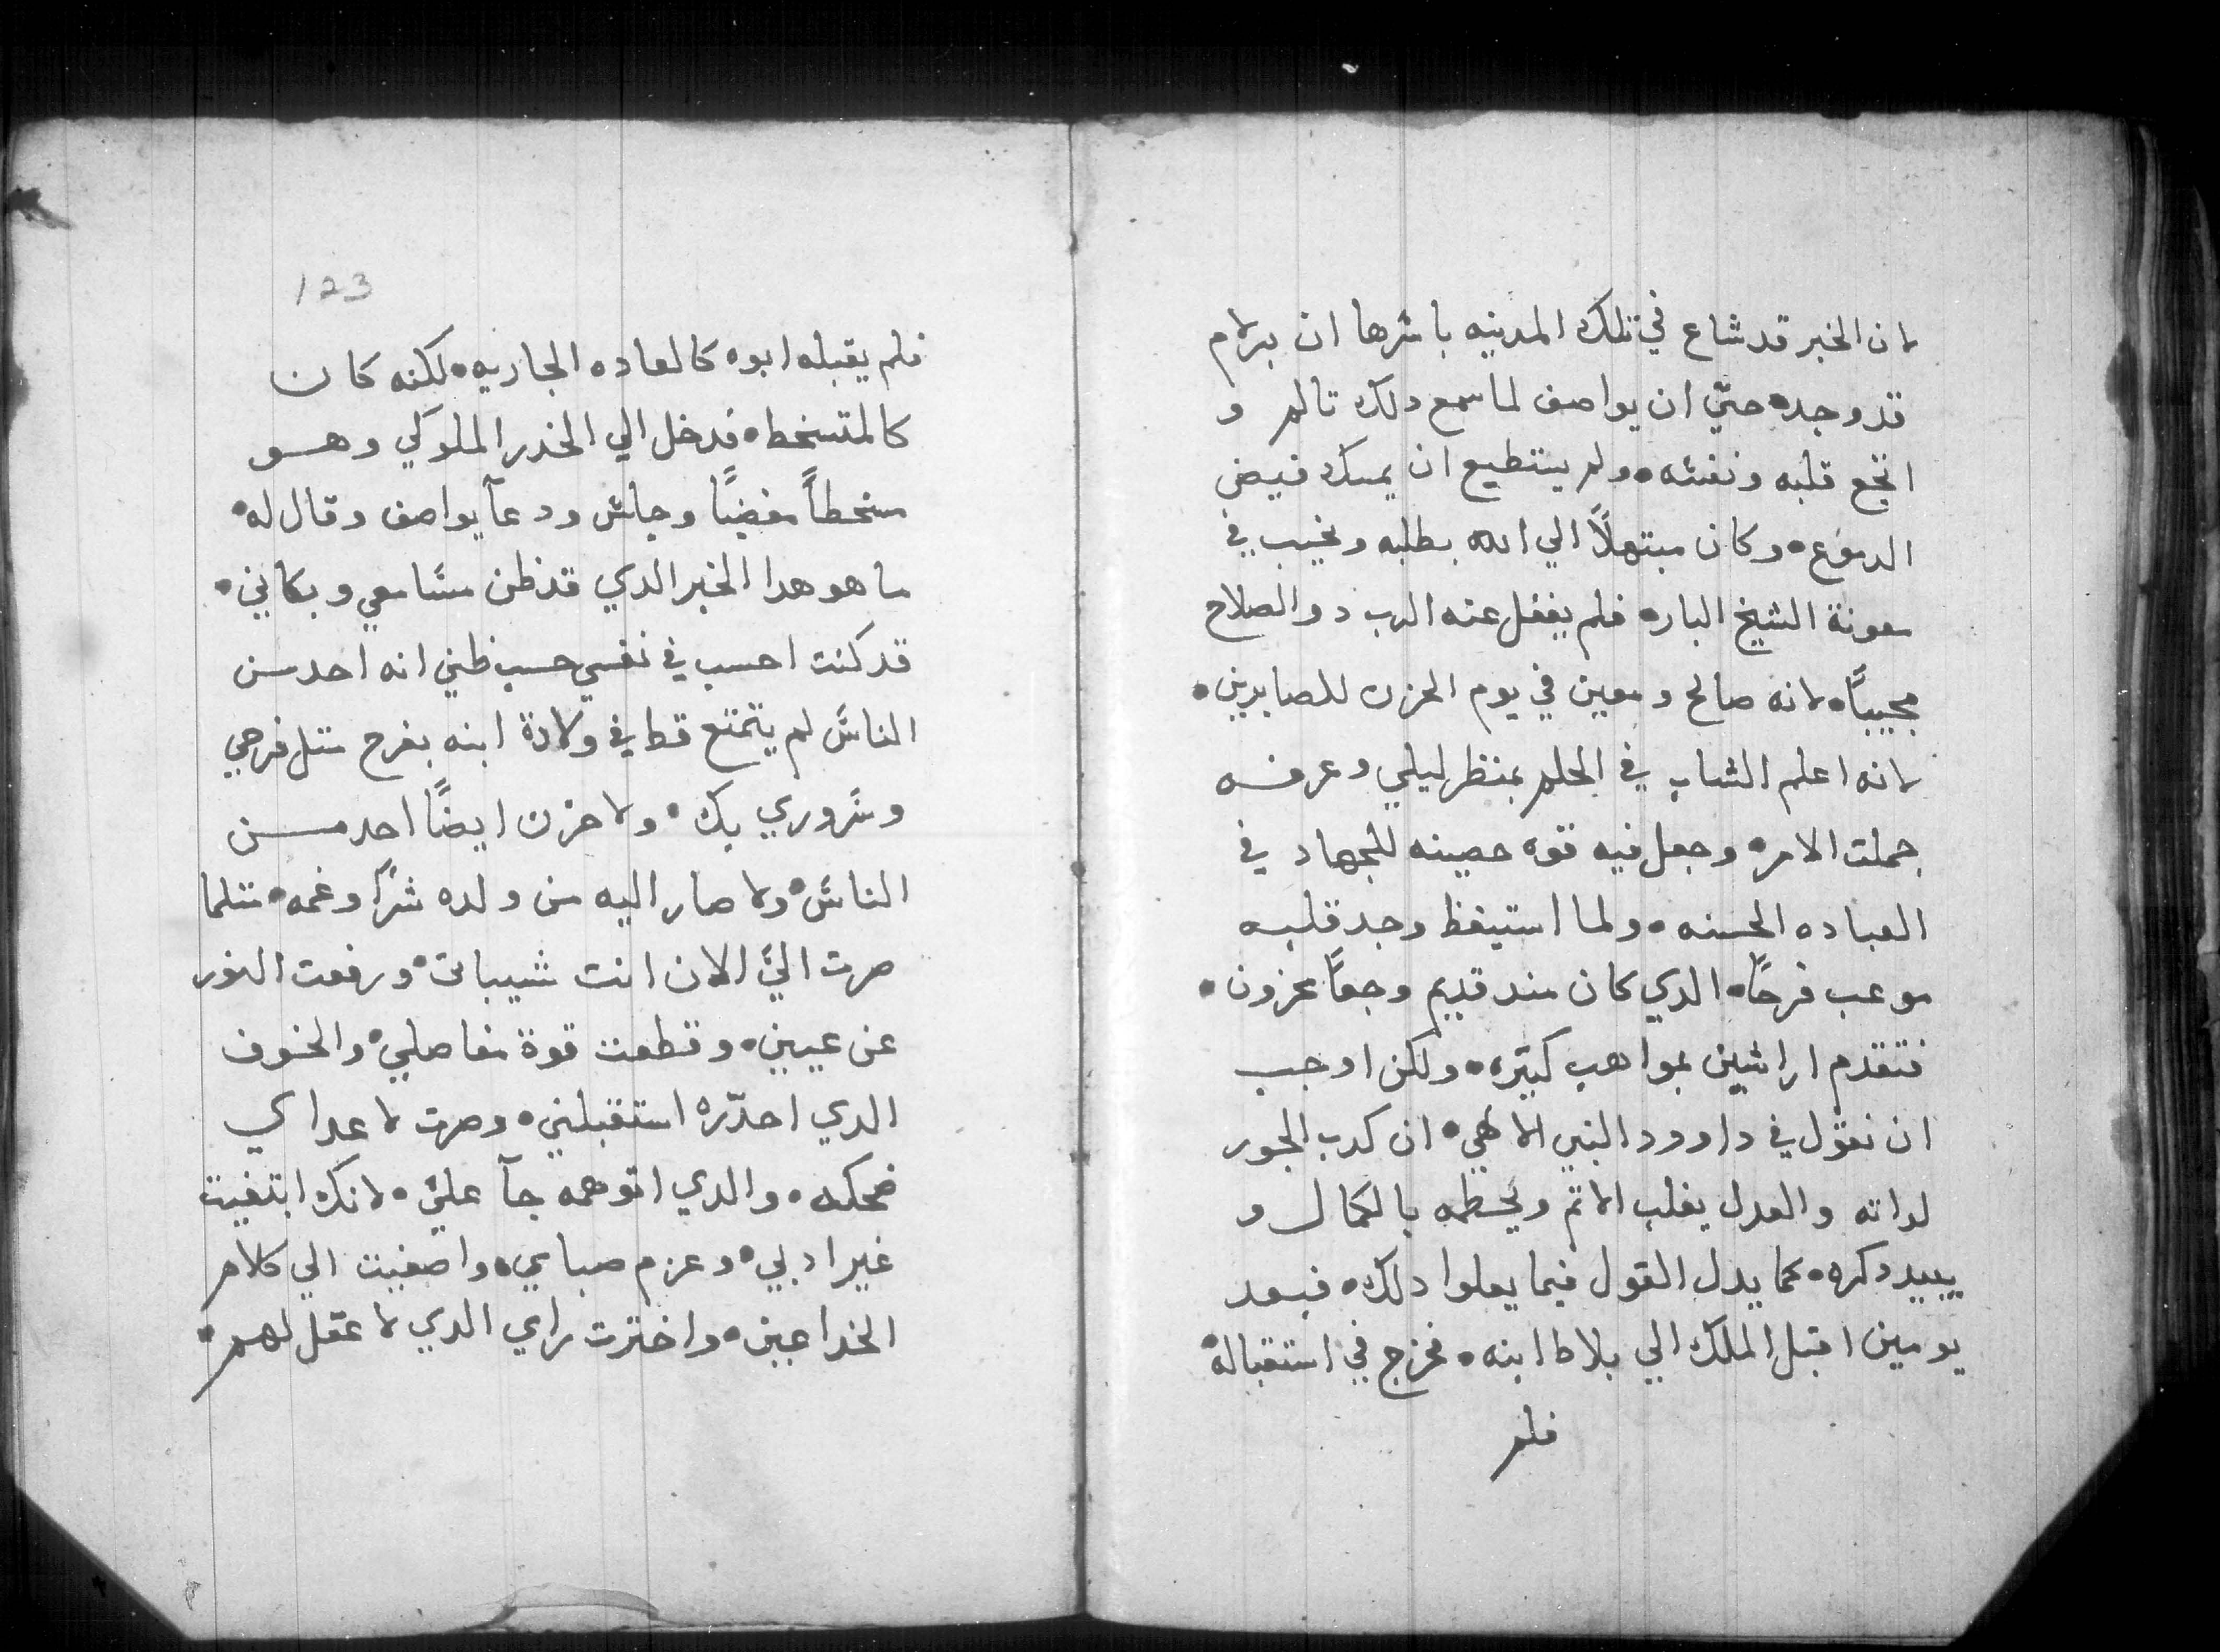 لان الخبر قد شاع في تلك المدينه باسرها ان برلام
قد وجده حتي ان يواصف لما سمع دلك تالم و
اتجع قلبه ونفسه • ولم يستطيع ان يمسك فيض
الدموع • وكان مبتهلاً الي الله بطلبه ونحيب في
معونة الشيخ الباره فلم يغفل عنه الرب دو الصلاح
مجيباً • لانه صالح ومعين في يوم الحزن للصابرين •
لانه اعلم الشاب في الحلم بمنظر ليلي وعرفه
جملت الامر • وجعل فيه قوه حصينه للجهاد في
العباده الحسنه • ولما استيقظ وجد قلبه
موعب فرحًا • الدي كان مند قديم وجعًا محزون •
فتقدم اراشين بمواهب كتيره • ولكن اوجب
ان نقول في داوود النبي الالهي • ان كدب الجور
لداته والعدل يغلب الاتم ويحطمه بالكمال و
يبيد دكره • كما يدل القول فيما يعلوا دلك • فبعد
يومين اقبل الملك الي بلاط ابنه • فخرج في استقباله •
فلم
123
فلم يقبله ابوه كالعاده الجاريه • لكنه كان
كالمتسخط • فدخل الي الخدر الملوكي وهو
مسخطاً مغضبًا وجلس ودعآ يواصف وقال له •
ما هو هدا الخبر الدي قد طن مسامعي وبكاني •
قد كنت احسب في نفسي حسب ظني انه احد من
الناس لم يتمتع قط في ولادة ابنه بفرح متل فرحي
وسروري بك • ولا حزن ايضًا احد من
الناس • ولا صار اليه من ولده شرًا وغمه • متلما
صرت اليّ الان انت شيباتى • ورفعت النور
عن عيني • وقطعت قوة مفاصلي • والخوف
الدي احدّره استقبلني • وصرت لاعداي
ضحكه • والدي اتوهمه جآ عليّ • لانك ابتغيت
غير ادبي • وعزم صباي • واصغيت الي كلام
الخداعين • واخترت راي الدي لا عقل لهم •